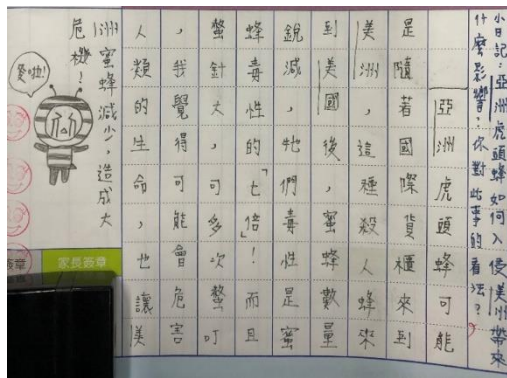 小日記:亞洲虎頭蜂如何入侵美洲帶來
什麼影響?你對此事的看法?
亞洲虎頭蜂可能
是隨著國際貨櫃來到
美洲,這種殺人蜂來
到美國後,蜜蜂數量
銳減,牠們毒性是蜜
蜂毒性的「七倍」!而且
螫針大,可多次螫叮
,我覺得可能會危害
人類的生命,也讓美
洲蜜蜂減少,造成大
危機!
家長簽章